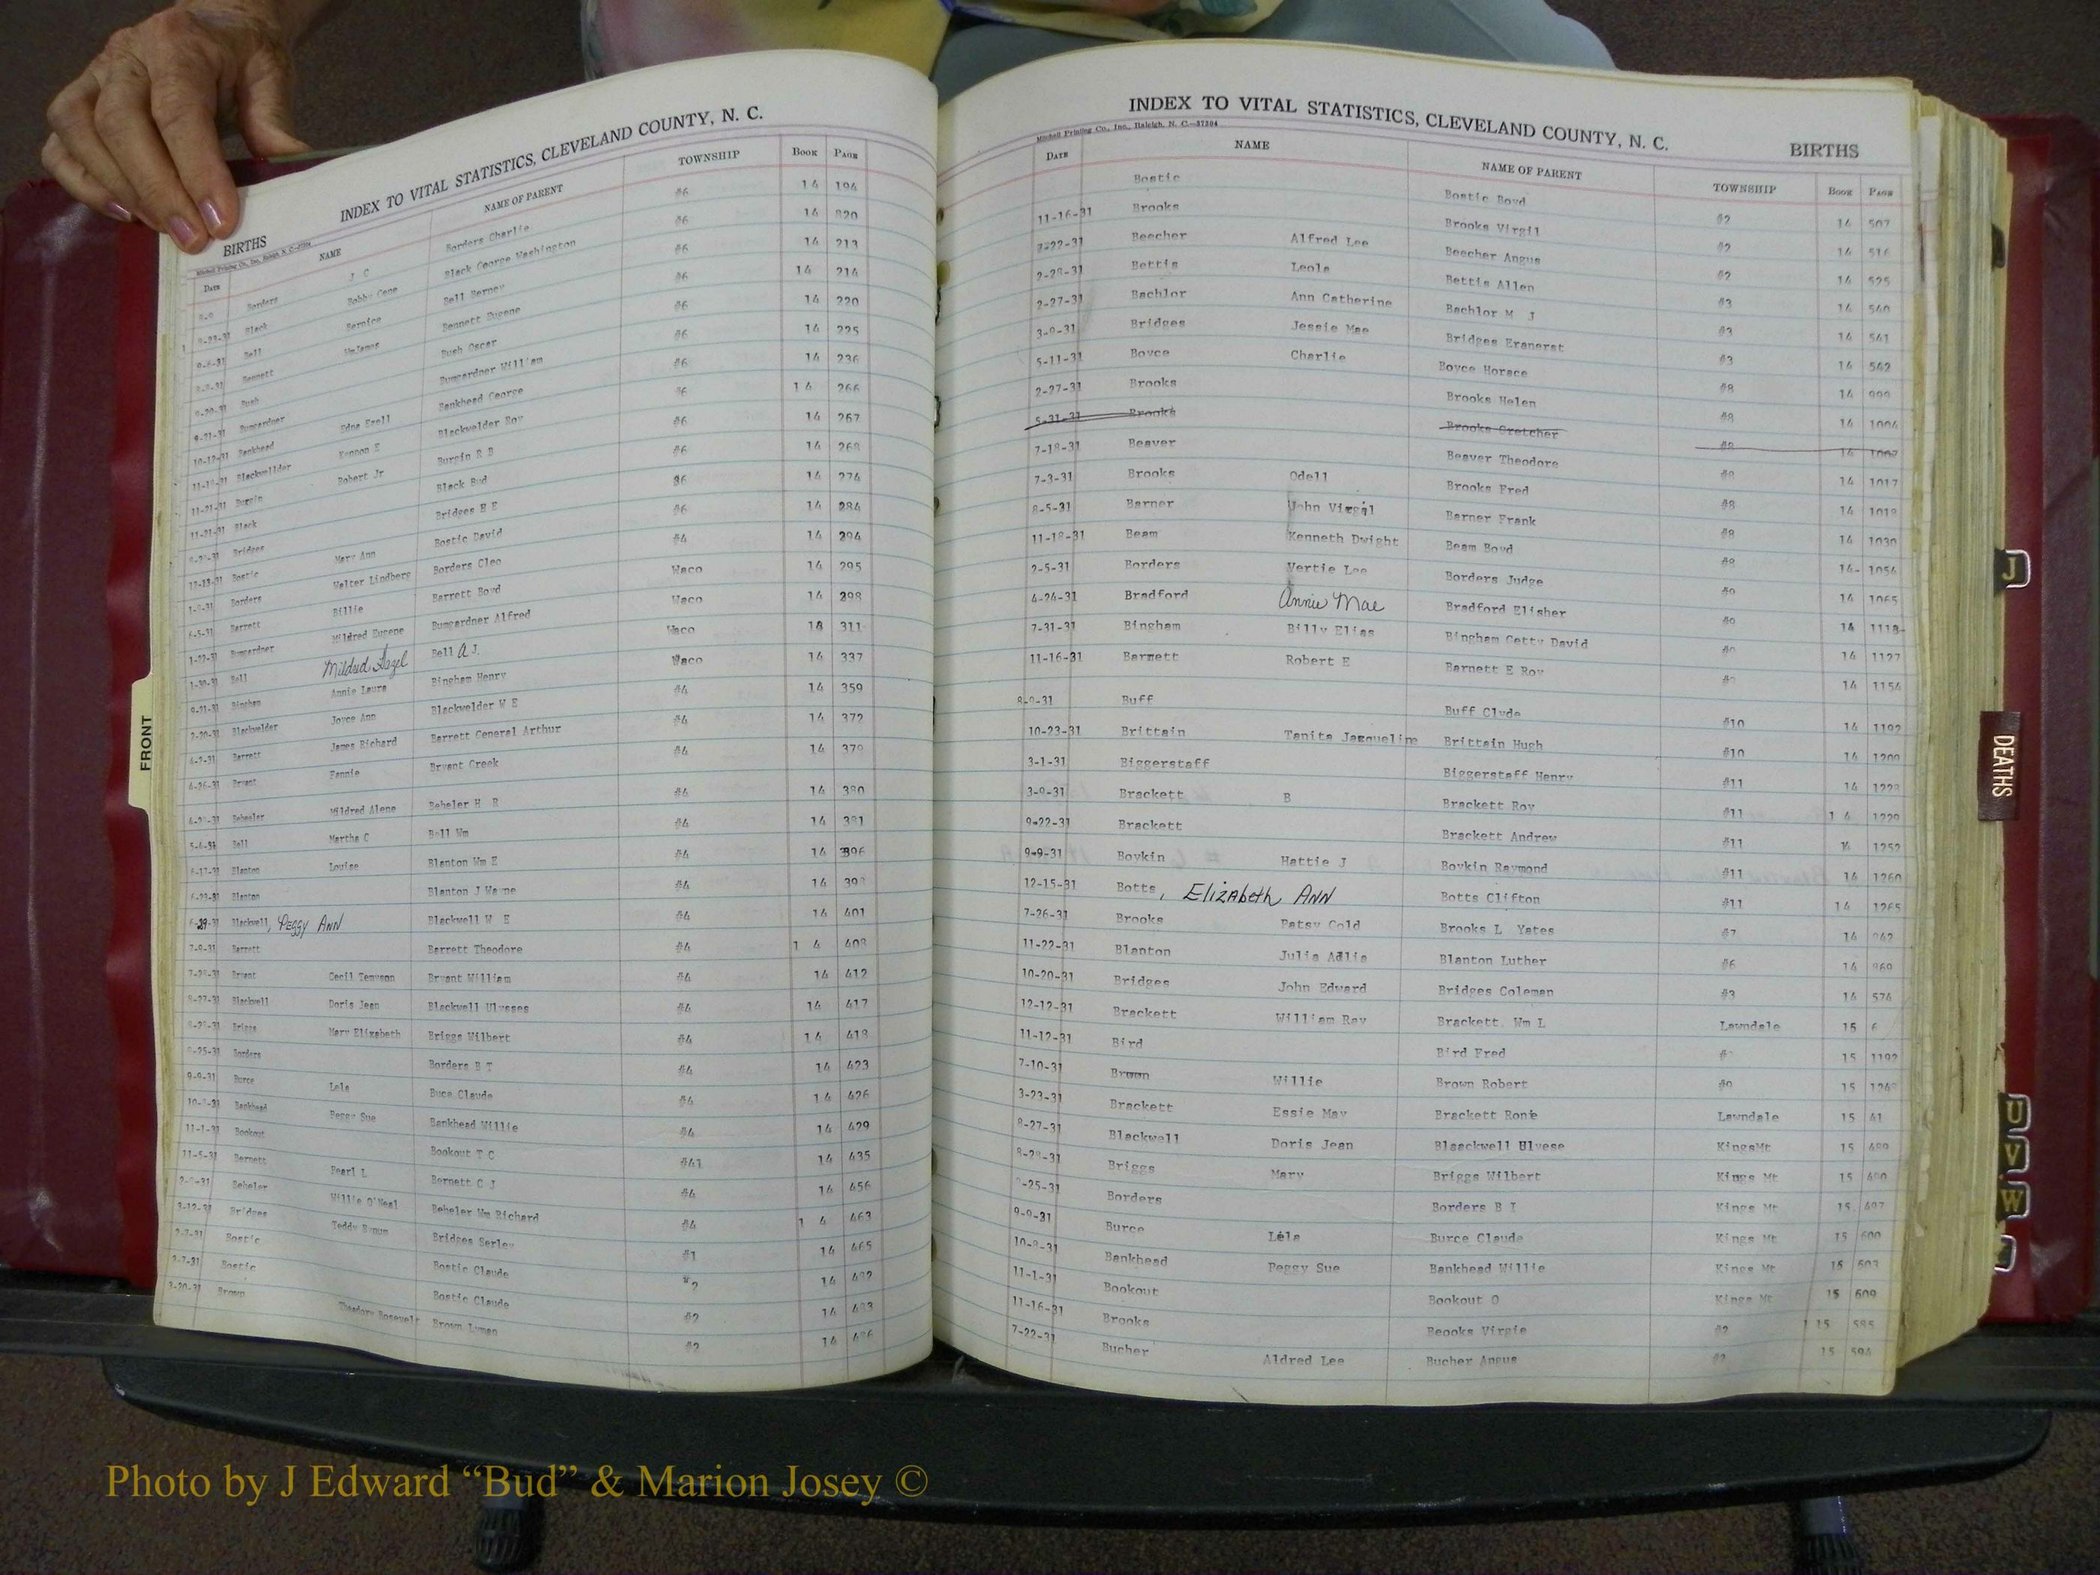 INDEX TO VITAL STATISTICS, CLEVELAND COUNTY, N. C.
BIRTHS
DATE NAME NAME OF PARENT TOWNSHIP BOOK PAGE
Borders J C Borders Charlie #6 14 194
Black Bobby Gene Black George Washington #6 14 820
Bell Bernice Bell Berney #6 14 213
Bennett WmJames Bennett Eugene #6 14 214
Bush Bush Oscar #6 14 220
Bumgardner Bumgardner William #6 14 225
Bankhead Edna Ezell Bankhead George #6 14 236
Blackwelder Kennon E Blackwelder Roy 14 266
Burgin Robert Jr Burgin R B #6 14 267
Black Black Bud #6 14 268
Bridges Bridges H E 14 274
Bostic Mary Ann Bostic David #6 14 284
Borders Walter Lindberg Borders Cleo #4 14 294
Barrett Billie Barrett Boyd Waco 14 295
Bumgardner Mildred Eugene Bumgardner Alfred Waco 14 298
Bell Mildred Hazel Bell A J Waco 311
Bingham Annie Laura Bingham Henry Waco 14 337
Blackwelder Joyce Ann Blackwelder W E #4 14 359
Barrett James Richard Barrett General Arthur #4 14 372
Bryant Fannie Bryant Greek #4 14 379
Mildred Alene Beheler H R #4 14 380
Bell Martha C Bell Wm #4 14 381
Blanton Louise Blanton Wm E #4 14 396
Blanton Blanton J Wayne #4 14
Blackwell, Peggy Ann Blackwell W E #4 14 401
7-9-31 Barrett Barrett Theodore #4 1 4 408
Bryant Cecil Bryant William #4 14 412
8-27-31 Blackwell Doris Jean Blackwell Ulysses #4 14 417
Briggs Mary Elizabeth Briggs Wilbert #4 14 418
Borders Borders B T #4 14 423
9-9-31 Burce Lela Buce Claude #4 14 426
Bankhead Peggy Sue Bankhead Willie #4 14 429
11-1-31 Bookout Bookout T C #41 14 435
11-5-31 Bernett Pearl L Bernett C J #4 14 456
Beheler Willie O'Neal Beheler Wm Richard #4 1 4 463
3-12-31 Bridges Teddy Bridges #1 14 465
Bostic Bostic Claude 14
Bostic Bostic Claude #2 14
3-20-31 Brown Theadory Rosevelt Brown Lyman #2 14
FRONT
INDEX TO VITAL STATISTICS, CLEVELAND COUNTY, N. C.
BIRTHS
Mitchell Printing Co., Inc., Raleigh, N. C.—37304
DATE NAME NAME OF PARENT TOWNSHIP BOOK PAGE
Bostic Bostic Boyd #2 14 507
11-16-31 Brooks Brooks Virgil #2 14 516
Beecher Alfred Lee Beecher Angus #2 14 525
2-28-31 Bettis Leola Bettis Allen #3 14 540
2-27-31 Bachlor Ann Catherine Bachlor M J #3 14 541
Bridges Jessie Mae Bridges #3 14 542
5-11-31 Boyce Charlie Boyce Horace #8 14 999
2-27-31 Brooks Brooks Helen #8 14 1004
5-31-31 Brooks Brooks Gretcher 14
7-18-31 Beaver Beaver Theodore 14 1017
7-3-31 Brooks Odell Brooks Fred #8 14 1018
8-5-31 Barner John Virgil Barner Frank #8 14 1030
11-18-31 Beam Kenneth Dwight Beam Boyd 14 1054
2-5-31 Borders Vertie Lee Borders Judge 14 1065
4-24-31 Bradford Annie Mae Bradford Elisher 14 1118
7-31-31 Bingham Billy Elias Bingham Getty David 14 1127
11-16-31 Barnett Robert E Barnett E Roy 14 1154
Buff Buff Clyde #10 14 1192
10-23-31 Brittain Tanita Jacqueline Brittain Hugh #10 14 1209
3-1-31 Biggerstaff Biggerstaff Henry #11 14
Brackett B Brackett Roy #11 1 4 1229
9-22-31 Brackett Brackett Andrew #11 1252
9-9-31 Boykin Hattie J Boykin Raymond #11 14 1260
12-15-31 Botts, Elizabeth Ann Botts Clifton #11 14 1265
7-26-31 Brooks Patsy Cold Brooks L Yates #7 14
11-22-31 Blanton Julia Adlis Blanton Luther #6 14
10-20-31 Bridges John Edward Bridges Coleman #3 14 574
12-12-31 Brackett William Ray Brackett Wm L Lawndale 15 6
11-12-31 Bird Bird Fred 15 1192
7-10-31 Brown Willie Brown Robert 15
3-23-31 Brackett Essie May Brackett Rone Lawndale 15 41
8-27-31 Blackwell Doris Jean Blaackwell Ulvese KingsMt 15
8-28-31 Briggs Mary Briggs Wilbert Kings Mt 15
Borders Borders B I Kings Mt 15
9-9-31 Burce Lela Burce Claude Kings Mt 15 600
Bankhead Peggy Sue Bankhead Willie Kings Mt 15 603
11-1-31 Bookout Bookout O Kings Mt 15 609
11-16-31 Brooks Beooks Virgie #2 15 585
7-22-31 Bucher Aldred Lee Bucher Angus #2 15 594
J
DEATHS
U
V
W
Photo by J Edward “Bud” & Marion Josey ©